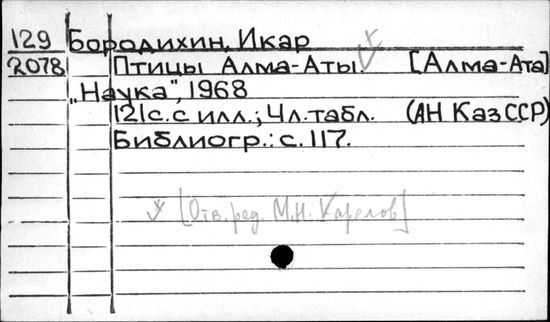 129 Бородихин, Икар
2078 Птицы Алма-Аты. [Алма-Ата]
„Наука", 1968
121с. с илл.; 4л. табл. (АН КазССР)
Библиогр.: с. 117.
[Отв. ред. М.Н. Карелов]